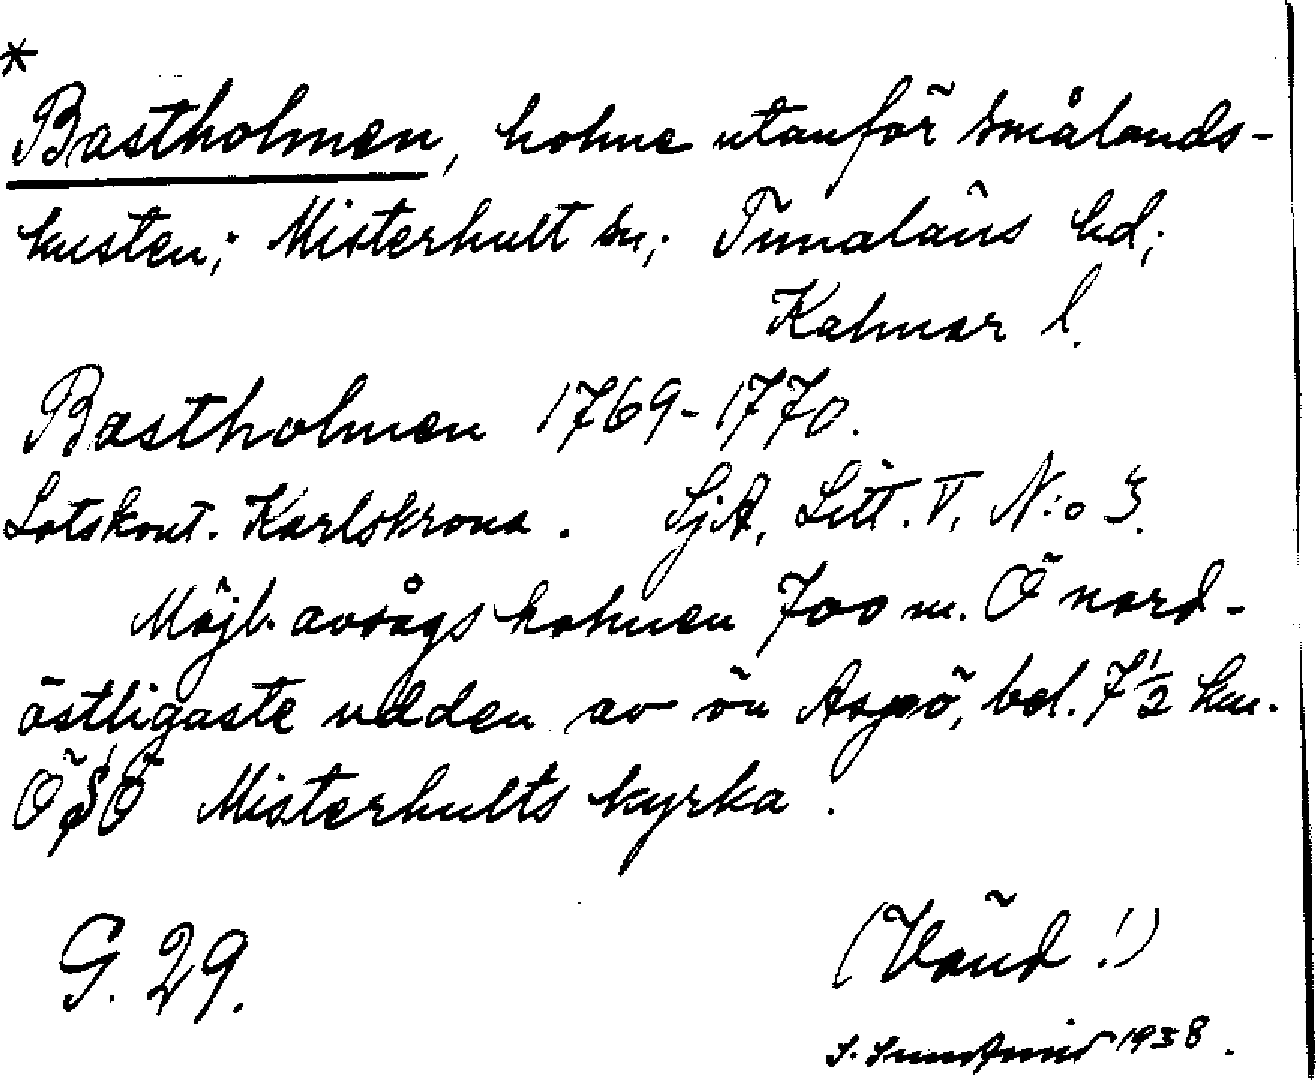 *
Bastholmen, holme utanför Smålands-
kusten; Misterhult sn; Tunaläns hd;
Kalmar l.
Bastholmen 1769-1770.
Lotskont. Karlskrona. SjA, Litt. V, N:o 3.
Möjl. avsågs holmen 700 m. Ö nord-
östligaste udden av ön Aspö, bel. 7 1/2 km.
ÖSÖ Misterhults kyrka.
G. 29.
(Vänd!)
S. 1938.